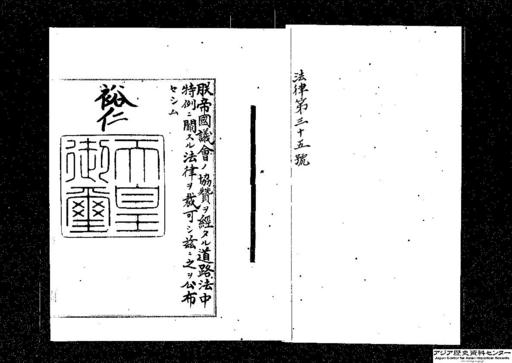 法律第三十五號
朕帝國議會ノ協贊ヲ經タル道路法中
特例ニ關スル法律ヲ裁可シ茲ニ之ヲ公布
セシム
裕仁
天皇
御璽
アジア歴史資料センター
Japan Center for Asian Historical Records